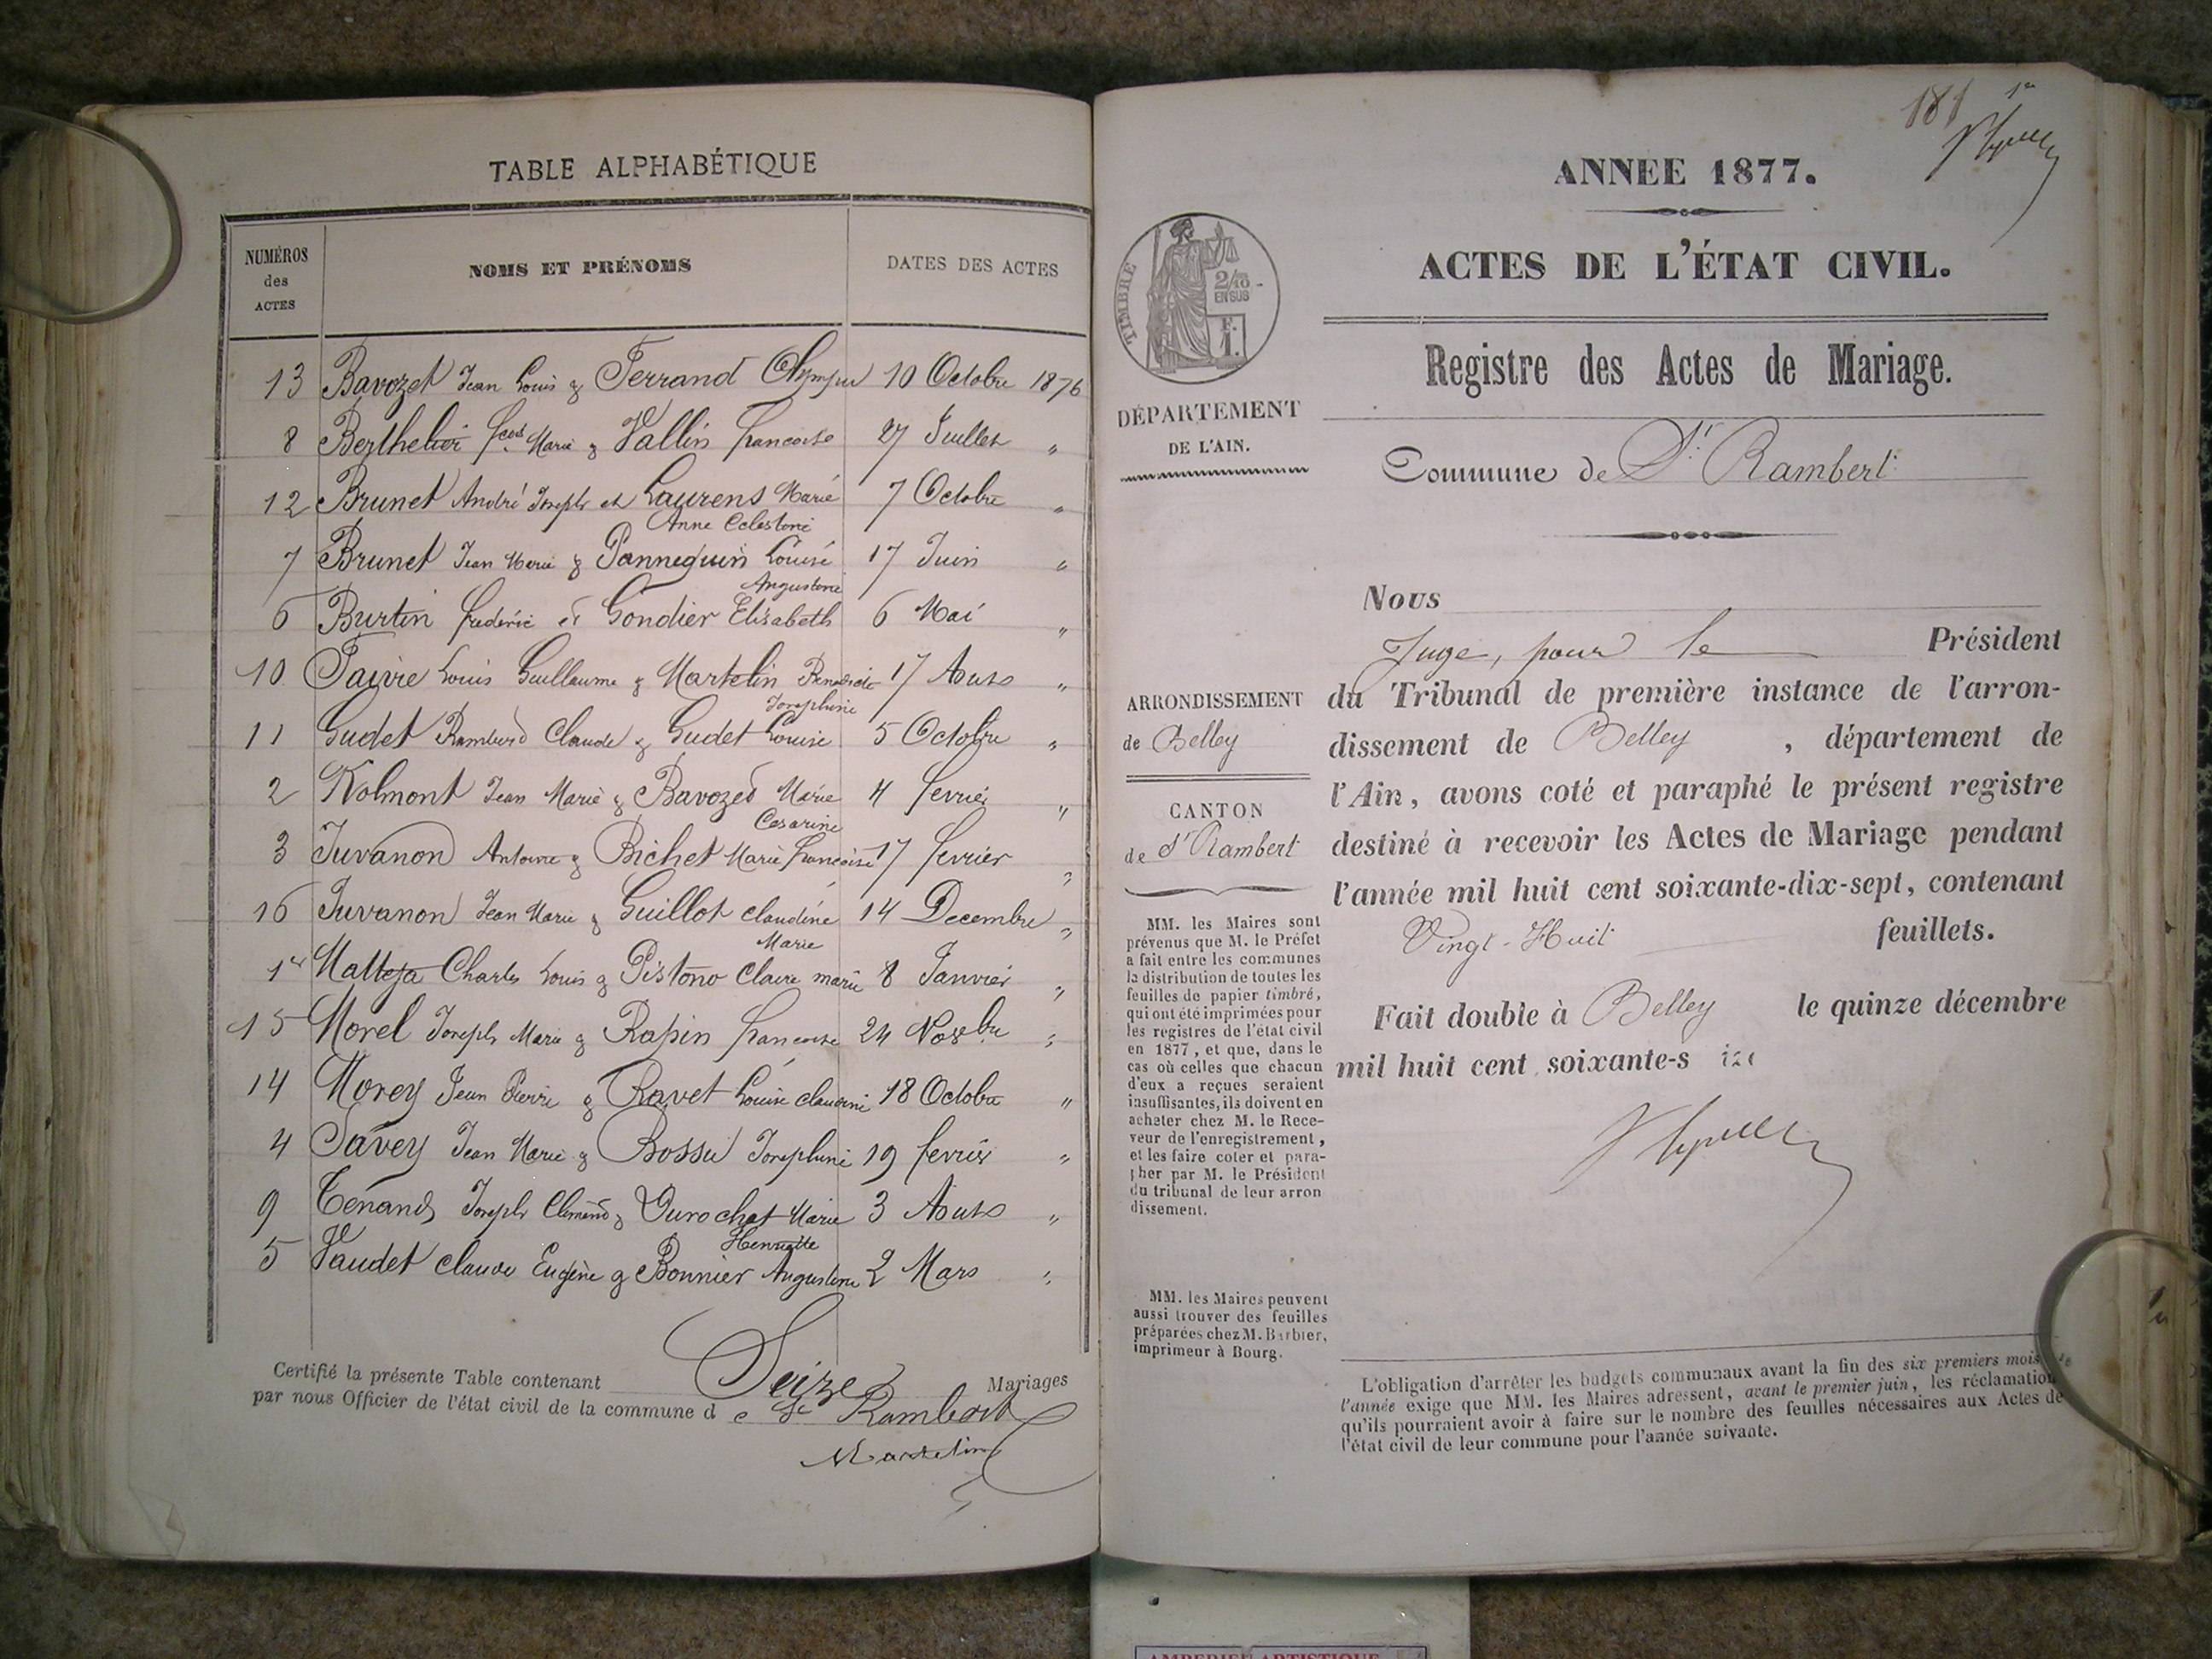 TABLE ALPHABÉTIQUE
NUMÉROS
des
ACTES
NOMS ET PRÉNOMS
DATES DES ACTES
13 Bavozet Jean Louis & Ferrand Olympe 10 Octobre 1876
8 Berthelier fcois Marie & Vallin francoise 27 Juillet "
12 Brunet André Joseph et Laurens Marie 7 Octobre "
Anne Celestine
7 Brunet Jean Marie & Pannequin Louise 17 Juin "
Augustine
6 Burtin frederic et Gondier Elisabeth 6 Mai "
10 Faivre Louis Guillaume & Martelin 17 Aout "
Josephine
11 Gudet Rambert Claude & Gudet Louise 5 Octobre "
2 Kolmont Jean Marie & Bavozet Marie 4 fevrier "
Cesarine
3 Juvanon Antoine & Bichet Marie francoise 17 fevrier "
16 Juvanon Jean Marie & Guillot claudine 14 Decembre "
Marie
1er Matteja Charles Louis & Pistono Claire marie 8 Janvier "
15 Morel Joseph Marie & Rapin francoise 24 Novbre "
14 Morey Jean Pierre & Ravet Louise claudine 18 Octobre "
4 Savey Jean Marie & Bossu Josephine 19 fevrier "
9 Tenand Joseph Clément & Durochat Marie 3 Aout "
Henriette
5 Vaudet claude Eugène & Bonnier Augustine 2 Mars "
Certifié la présente Table contenant Seize Mariages
par nous Officier de l'état civil de la commune de St Rambert
Martelin
181 1er
ANNEE 1877.
ACTES DE L'ÉTAT CIVIL.
TIMBRE
2/10
EN SUS
F.
1.
Registre des Actes de Mariage.
DÉPARTEMENT
DE L'AIN.
Commune de St Rambert
Nous
Juge, pour le Président
ARRONDISSEMENT
de Belley
du Tribunal de première instance de l'arron-
dissement de Belley, département de
l'Ain, avons coté et paraphé le présent registre
destiné à recevoir les Actes de Mariage pendant
l'année mil huit cent soixante-dix-sept, contenant
Vingt-Huit feuillets.
Fait double à Belley le quinze décembre
mil huit cent soixante-s ize
CANTON
de St Rambert
MM. les Maires sont
prévenus que M. le Préfet
a fait entre les communes
la distribution de toutes les
feuilles de papier timbré,
qui ont été imprimées pour
les registres de l'état civil
en 1877, et que, dans le
cas où celles que chacun
d'eux a reçues seraient
insuffisantes, ils doivent en
acheter chez M. le Rece-
veur de l'enregistrement,
et les faire coter et para-
pher par M. le Président
du tribunal de leur arron
dissement.
MM. les Maires peuvent
aussi trouver des feuilles
préparées chez M. Barbier,
imprimeur à Bourg.
L'obligation d'arrêter les budgets communaux avant la fin des six premiers mois de
l'année exige que MM. les Maires adressent, avant le premier juin, les réclamation
qu'ils pourraient avoir à faire sur le nombre des feuilles nécessaires aux Actes de
l'état civil de leur commune pour l'année suivante.
AMBERIEU ARTISTIQUE